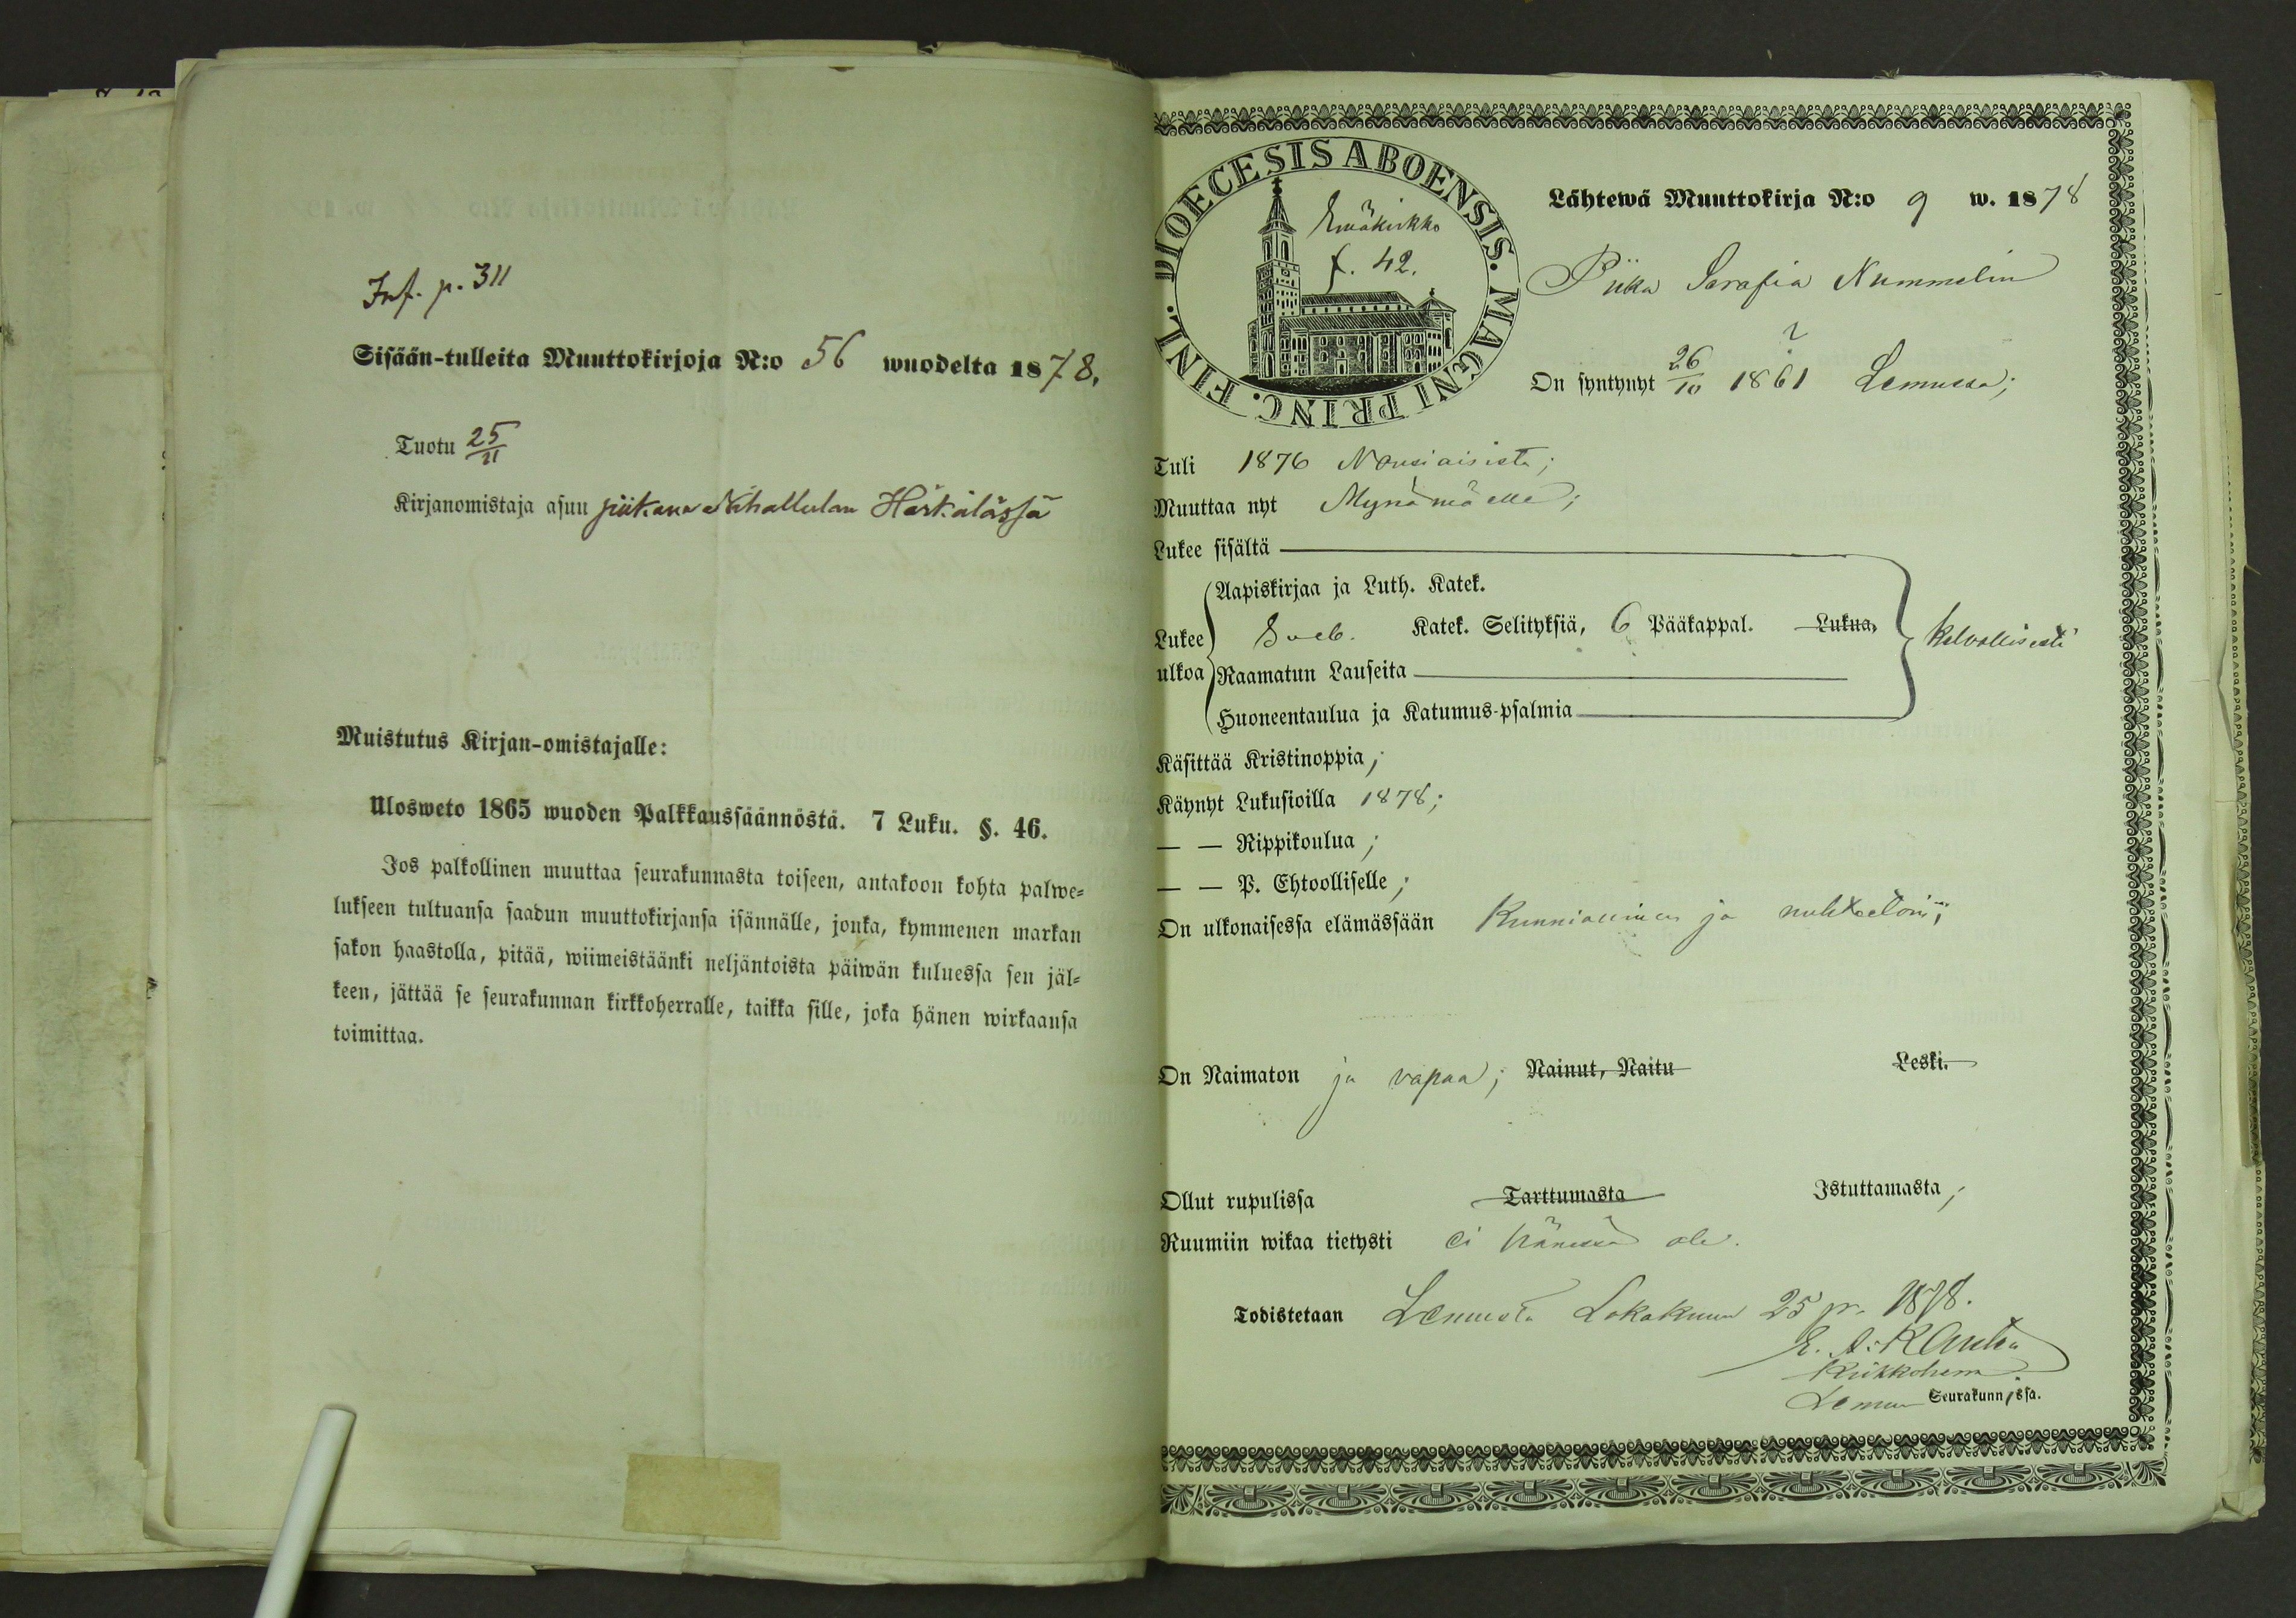 Inf. p. 311
Sisään-tulleita Muuttokirjoja N:o 56 wuodelta 1878.
Tuotu 25/11
Kirjanomistaja asuu piikana Härkälässä
Muistutus Kirjan-omistajalle:
Ulosweto 1865 wuoden Palkkaussäännöstä. 7 Luku. §. 46.
Jos palkollinen muuttaa seurakunnasta toiseen, antakoon kohta palwe-
lukseen tultuansa saadun muuttokirjansa isännälle, jonka, kymmenen markan
sakon haastolla, pitää, wiimeistäänki neljäntoista päiwän kuluessa sen jäl-
keen, jättää se seurakunnan kirkkoherralle, taikka sille, joka hänen wirkaansa
toimittaa.
DIOECESIS ABOENSIS. MAGNI PRINC. FINL.
Emäkirkko
f. 42.
Lähtewä Muuttokirja N:o 9 w. 1878
Piika Serafia Nummelin
On syntynyt 26/10 1861 Lemussa;
Tuli 1876 Nousiaisista;
Muuttaa nyt Mynämäelle;
Lukee sisältä
Aapiskirjaa ja Luth. Katek.
Lukee ulkoa Sveb. Katek. Selityksiä, 6 Pääkappal. Lukua, kelvollisesti
Raamatun Lauseita
Huoneentaulua ja Katumus-psalmia
Käsittää Kristinoppia;
Käynyt Lukusioilla 1878;
— — Rippikoulua;
— — P. Ehtoolliselle;
On ulkonaisessa elämässään Kunniallinen ja nuhteetoin;
On Naimaton ja vapaa; Nainut, Naitu Leski.
Ollut rupulissa Tarttumasta Istuttamasta;
Ruumiin wikaa tietysti ei hänessä ole.
Todistetaan Lemusta Lokakuun 25 p. 1878.
Kirkkoherra
Lemun Seurakunnissa.